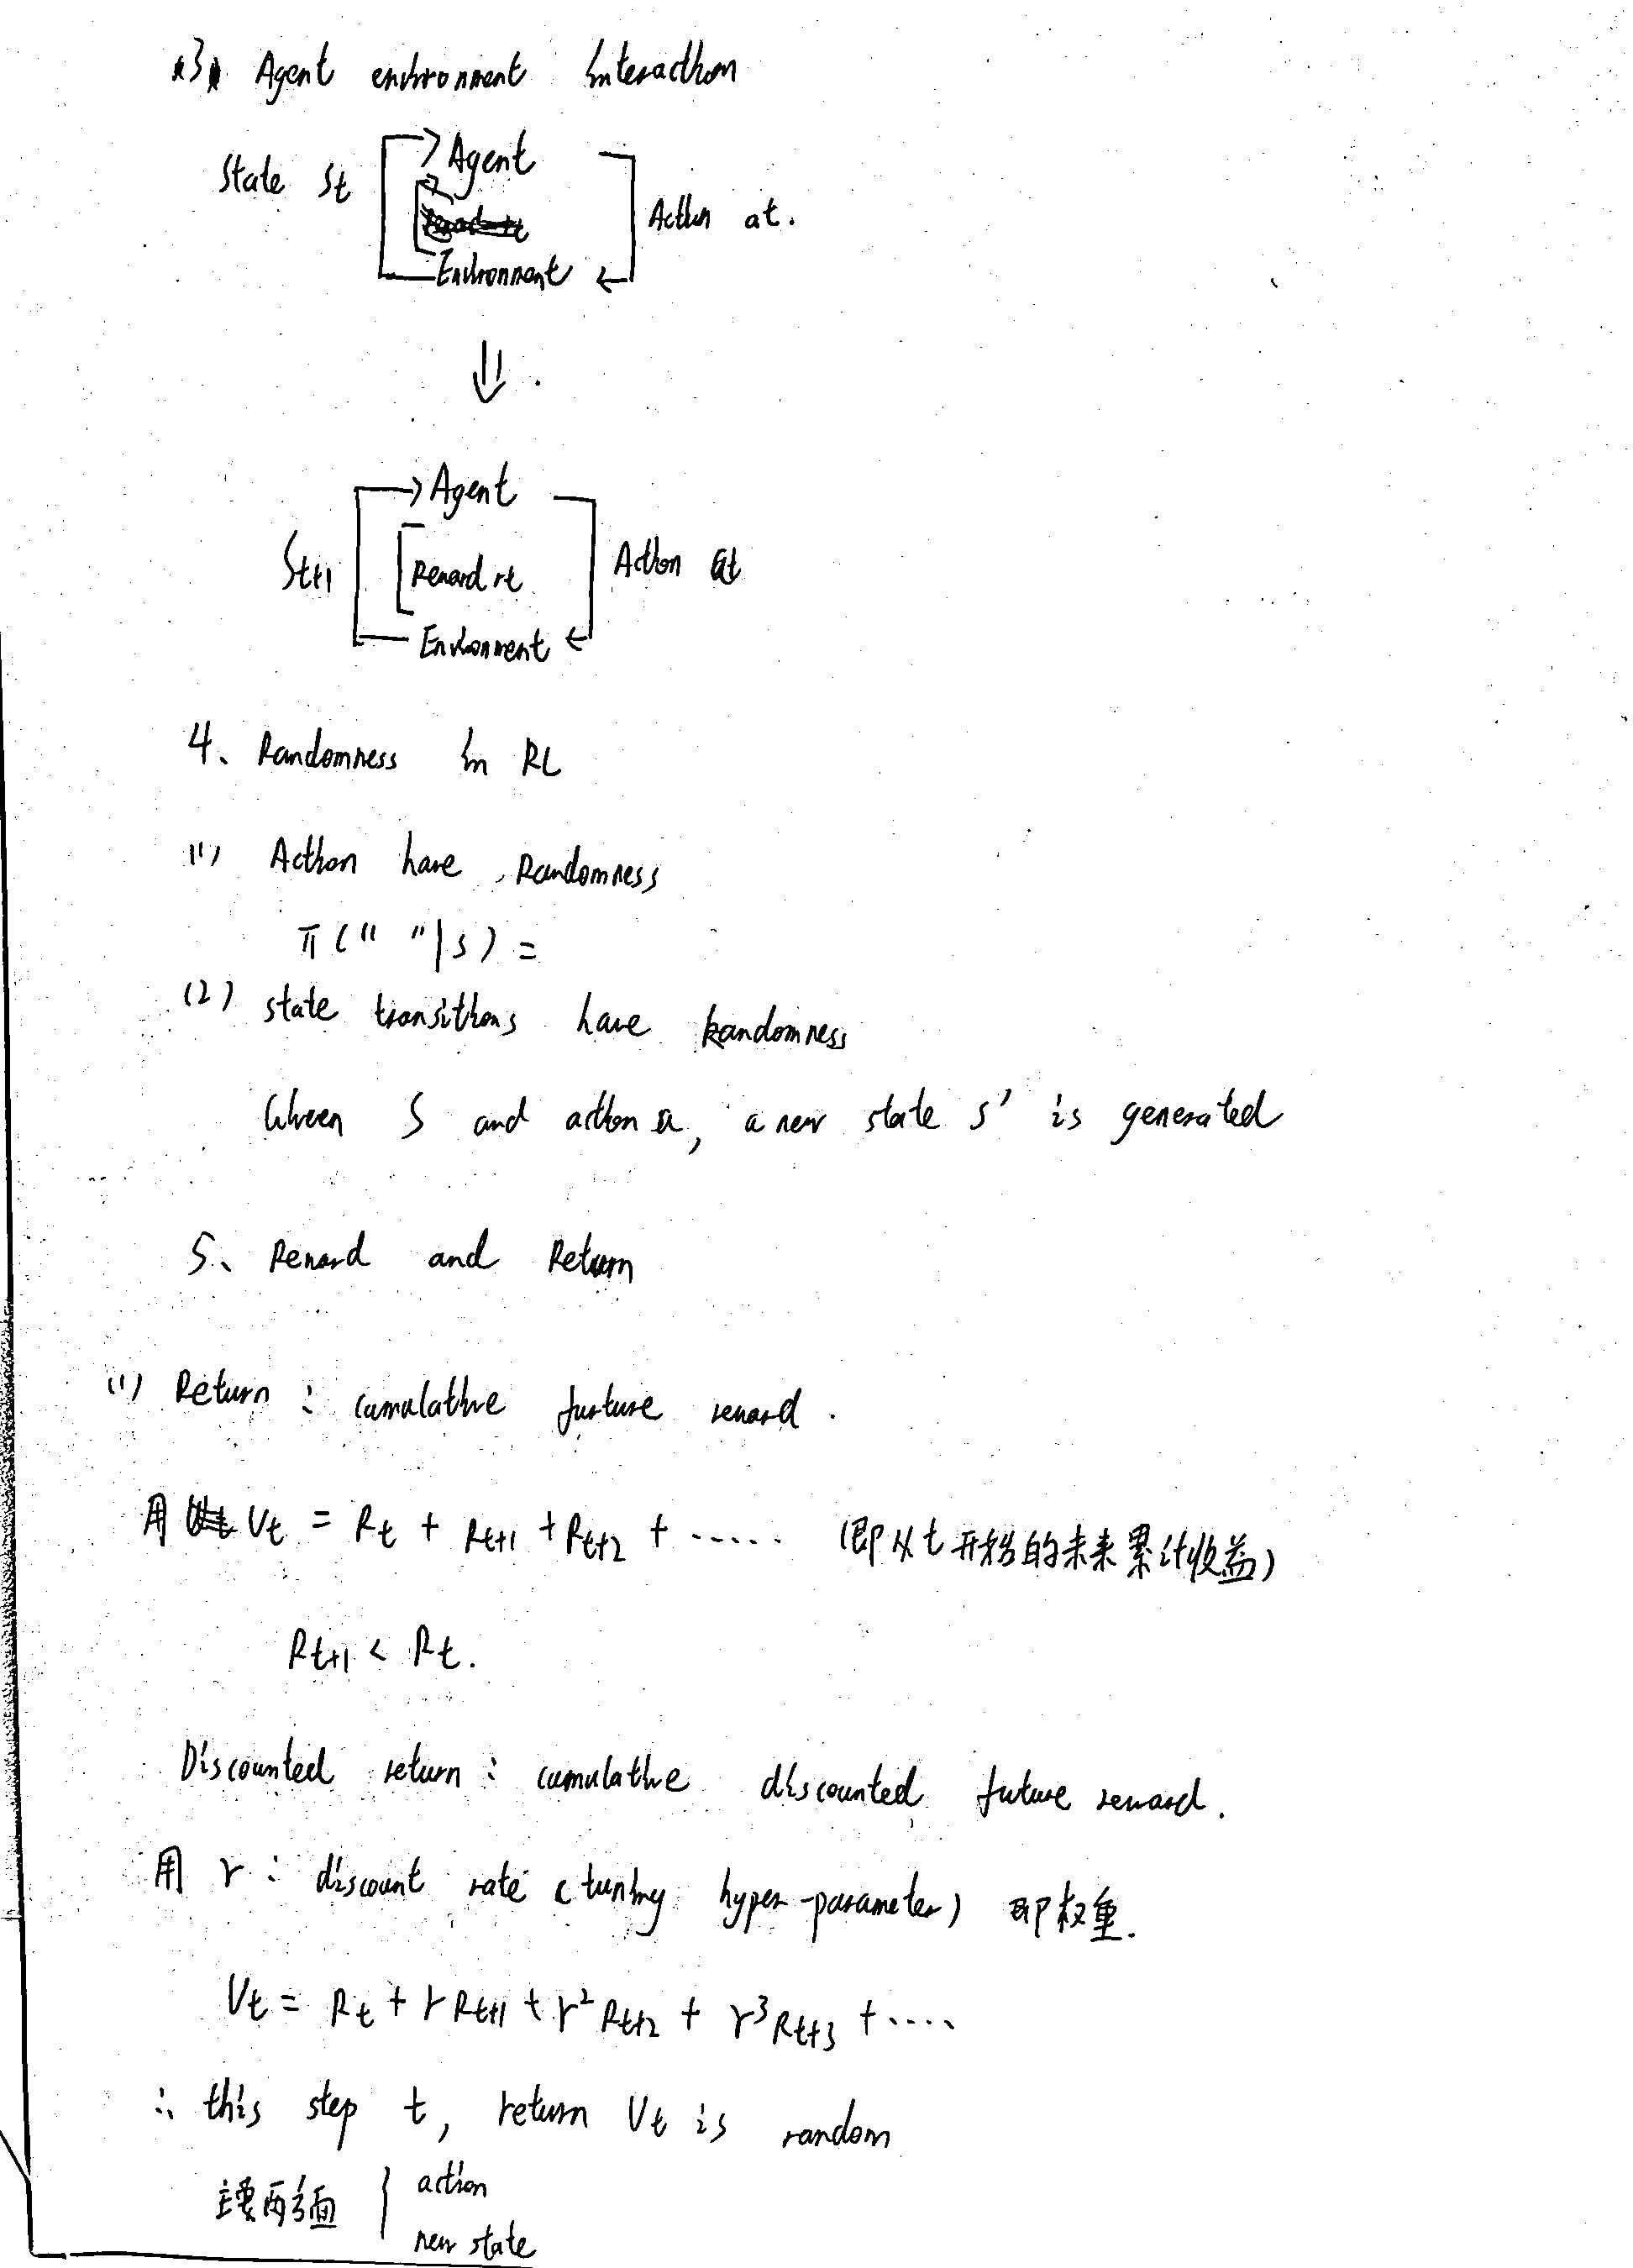 3、Agent environment interaction
State St
Agent
Action at.
Environment
⇓
Agent
St+1
Reward rt
Action at
Environment
4、Randomness in RL
(1) Action have Randomness
π(" "|s) =
(2) state transitions have Randomness
Given S and action a, a new state s' is generated
5、Reward and Return
(1) Return: cumulative furture reward.
用 Ut = Rt + Rt+1 + Rt+2 + ...... (即从t开始的未来累计收益)
Rt+1 < Rt.
Discounted return: cumulative discounted future reward.
用 γ: discount rate (tuning hyper-parameter) 即权重.
Ut = Rt + γRt+1 + γ²Rt+2 + γ³Rt+3 + ....
∴ this step t, return Ut is random
主要两方面 { action
new state